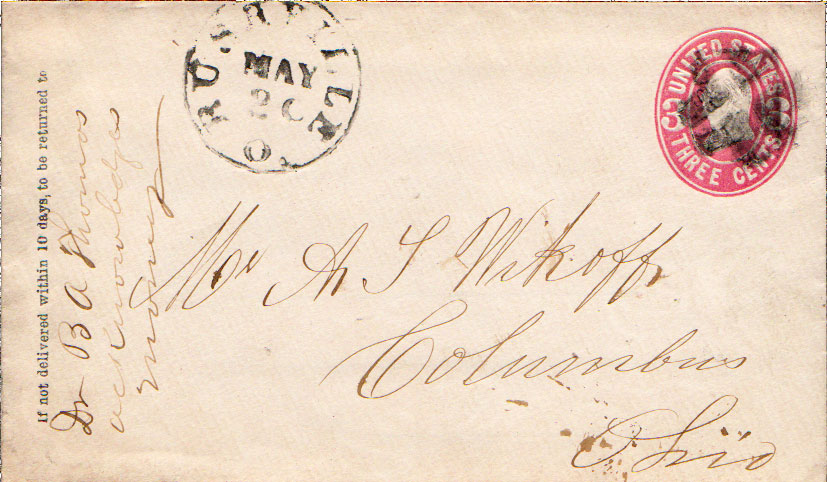 RUSHVILLE
O
MAY
20
UNITED STATES
THREE CENTS
3 3
If not delivered within 10 days, to be returned to
Dr B A Thomas
acknowledges
money
Mr A S Wikoff
Columbus
Ohio